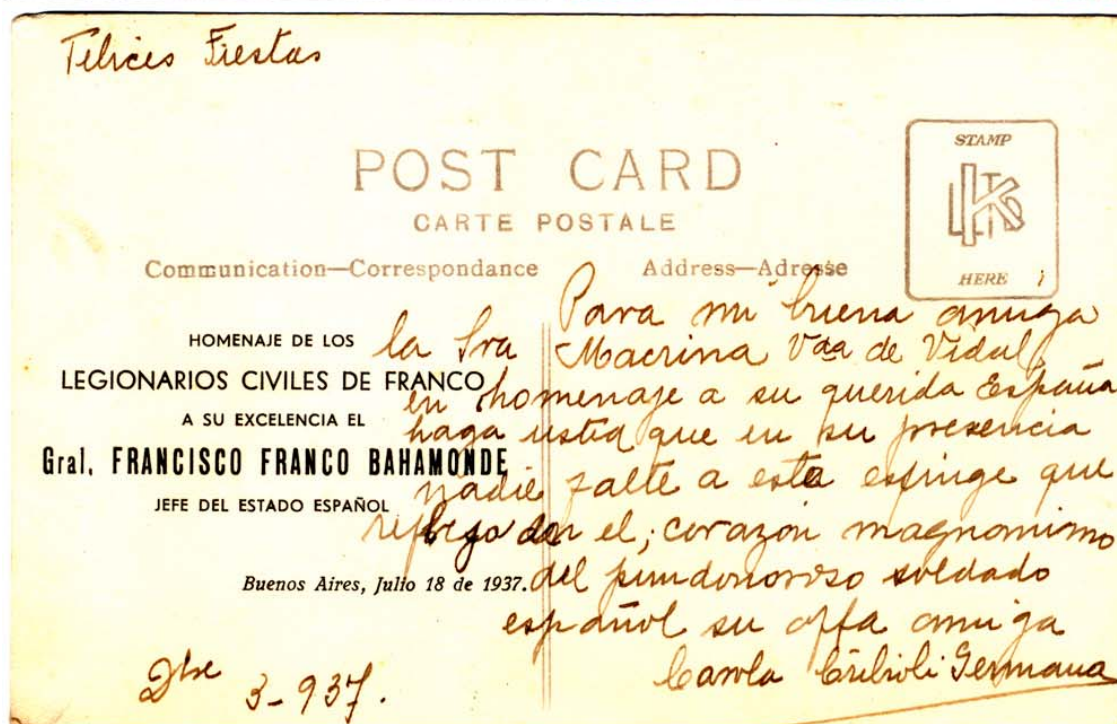 Felices Fiestas
POST CARD
CARTE POSTALE
Communication—Correspondance
Address—Adresse
STAMP
HERE
HOMENAJE DE LOS
LEGIONARIOS CIVILES DE FRANCO
A SU EXCELENCIA EL
Gral. FRANCISCO FRANCO BAHAMONDE
JEFE DEL ESTADO ESPAÑOL
Buenos Aires, Julio 18 de 1937.
Para mi buena amiga
la Sra Macrina Vda de Vidal
en homenaje a su querida España
haga usted que en su presencia
nadie falte a esta esfinge que
el, corazón magnanimo
del pundonoroso soldado
español su affa amiga
Carola Germana
Dbre 3-937.